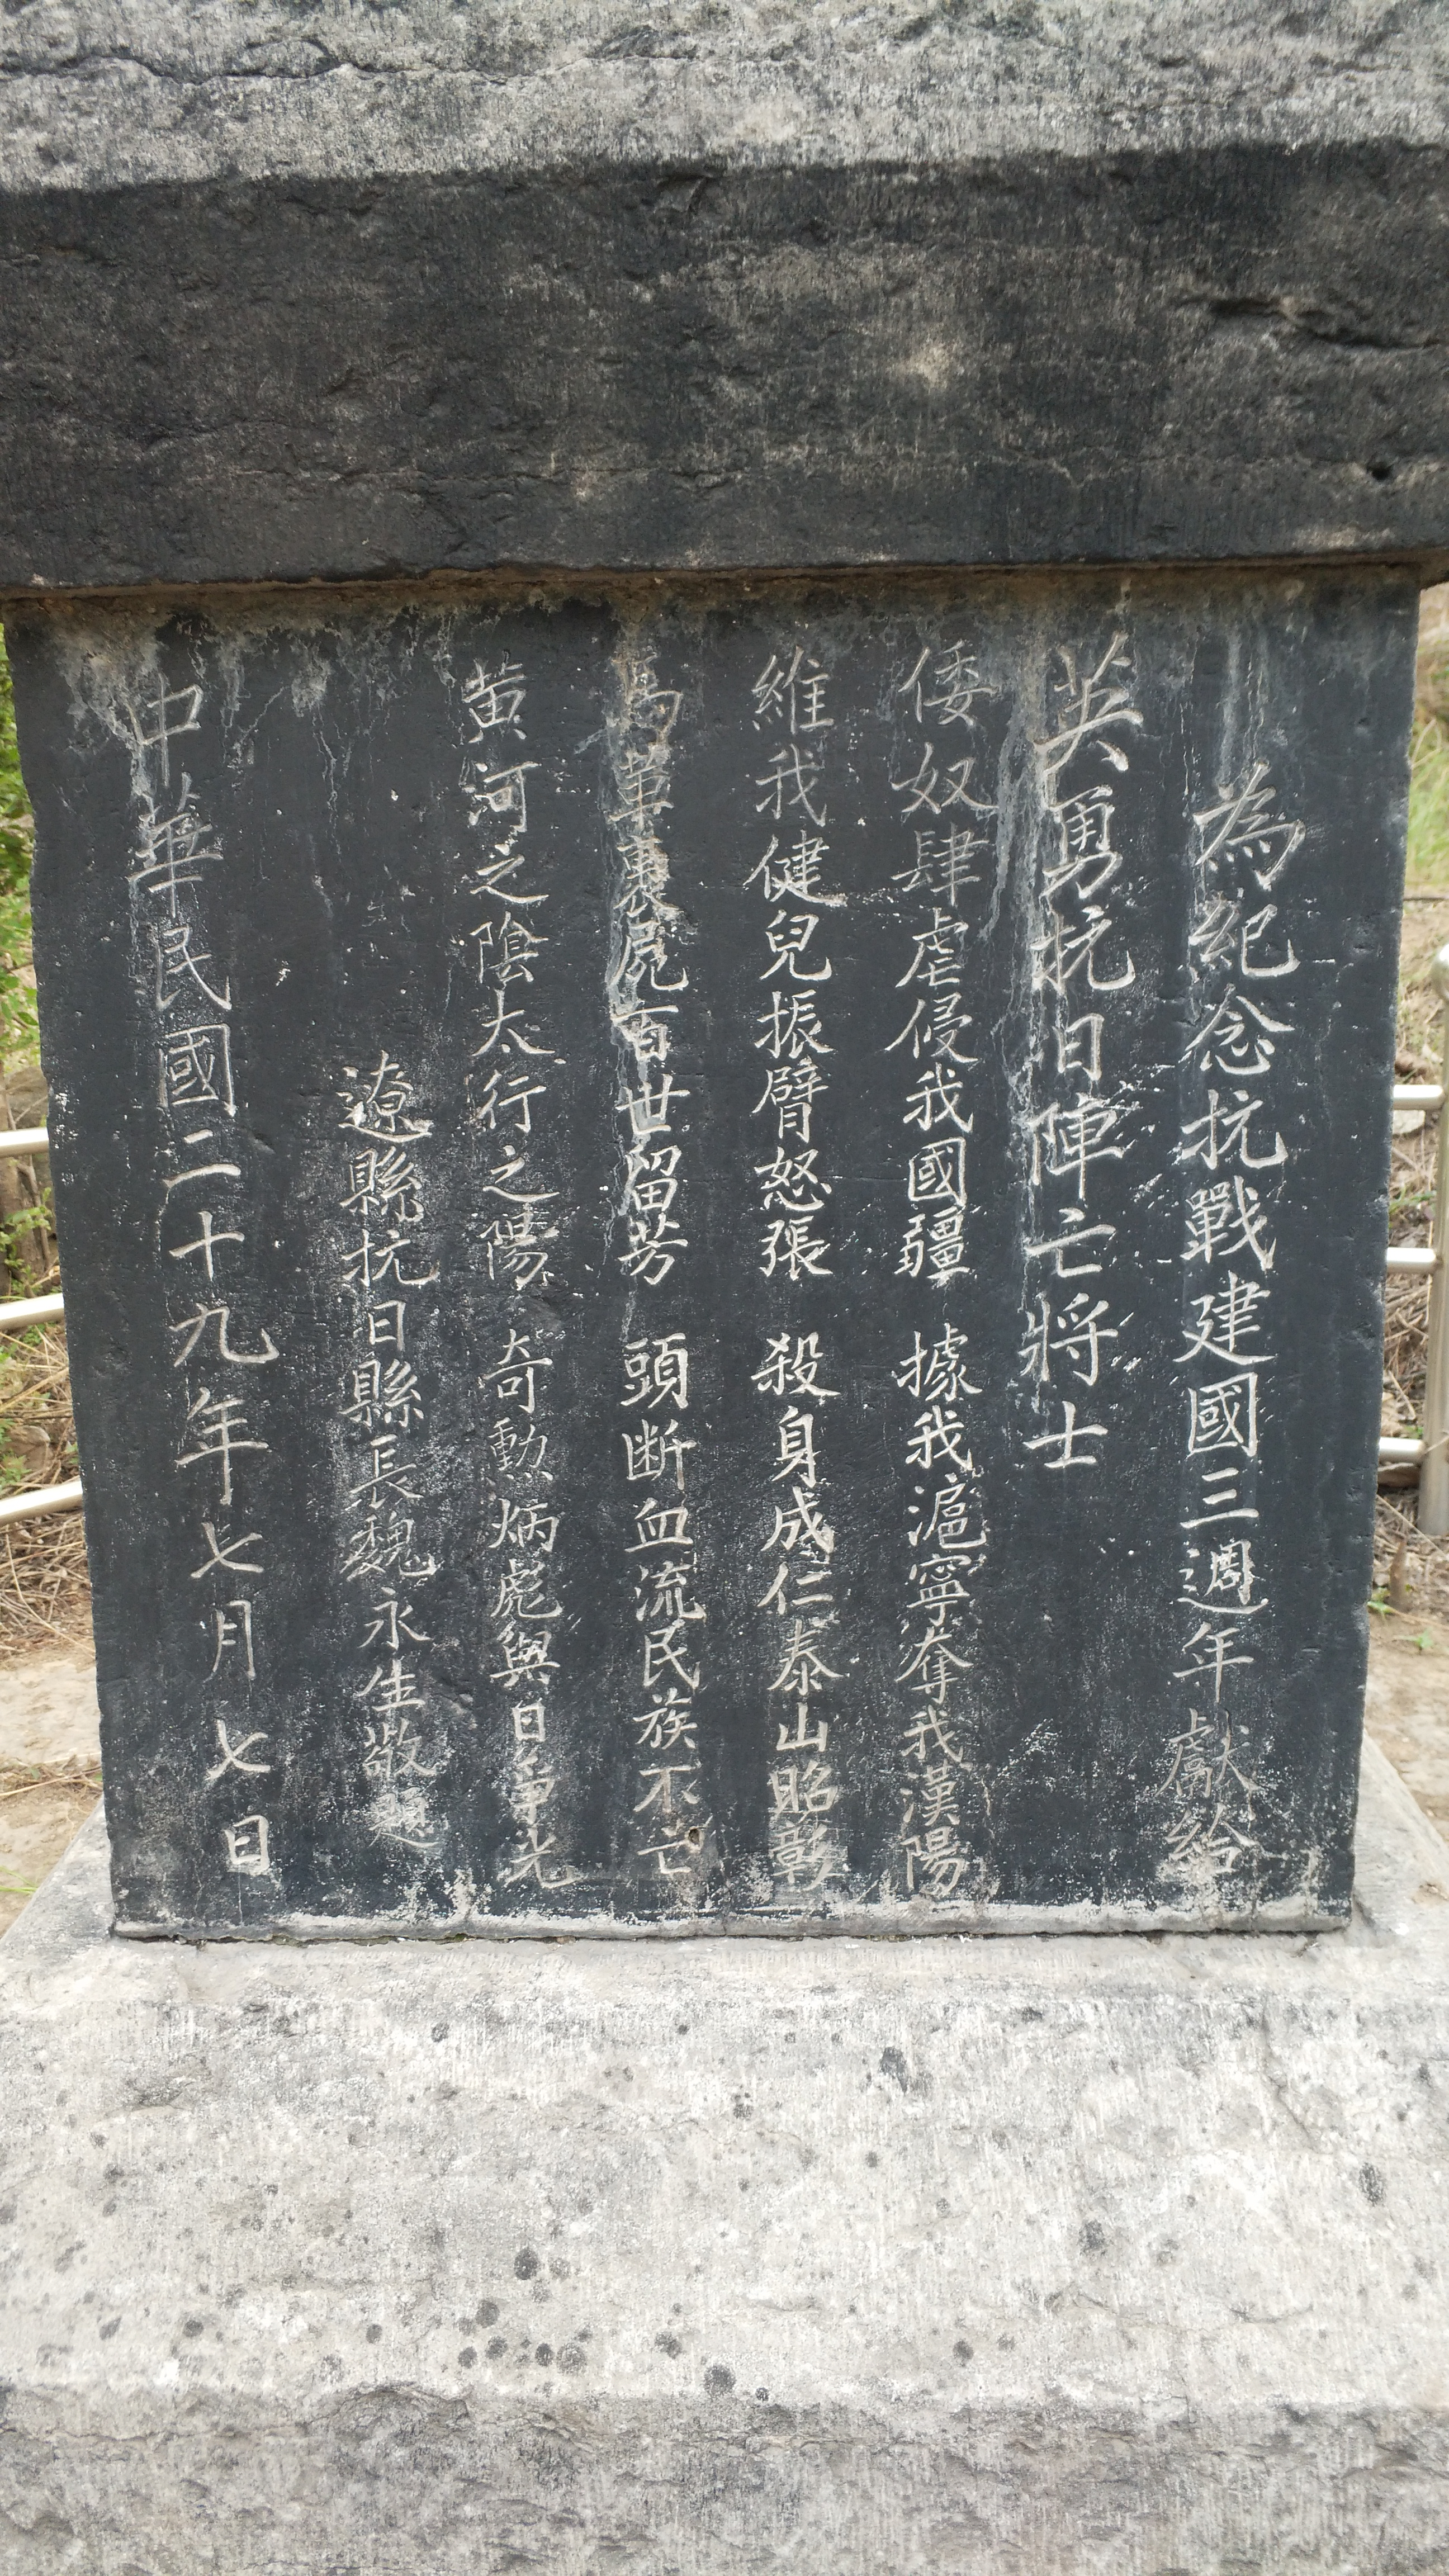 為紀念抗戰建國三週年獻給
英勇抗日陣亡將士
倭奴肆虐侵我國疆 據我滬寧奪我漢陽
維我健兒振臂怒張 殺身成仁泰山昭彰
馬革裹屍百世留芳 頭断血流民族不亡
黄河之陰太行之陽 奇勳炳彪與日爭光
遼縣抗日縣長魏永生敬題
中華民國二十九年七月七日